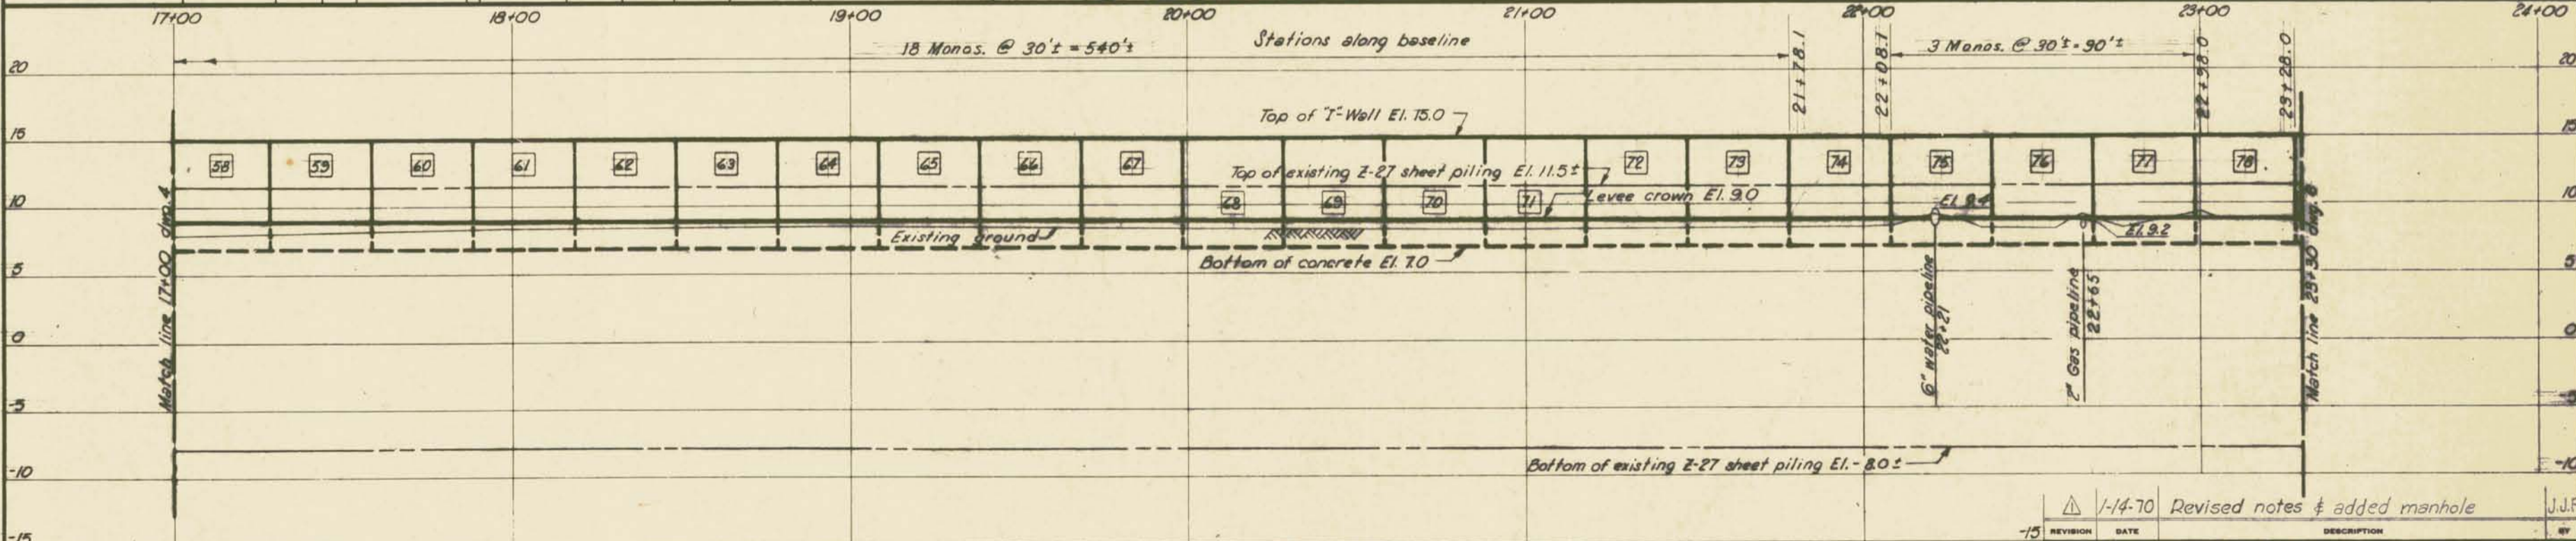 17+00 18+00 19+00 20+00 21+00 22+00 23+00 24+00
18 Monos. @ 30'± = 540'±
Stations along baseline
3 Monos. @ 30'± = 90'±
21+78.1
22+08.1
22+98.0
23+28.0
20 20
Top of "I"-Wall El. 15.0
15 15
58 59 60 61 62 63 64 65 66 67 72 73 74 75 76 77 78
Top of existing Z-27 sheet piling El. 11.5±
68 69 70 71
Levee crown El. 9.0
10 10
El. 9.4
El. 9.2
Existing ground
Bottom of concrete El. 7.0
5 5
Match line 17+00 dwg. 4
6" water pipeline
22+21
2" Gas pipeline
22+65
Match line 23+30 dwg. 6
0 0
-5 -5
Bottom of existing Z-27 sheet piling El. - 8.0±
-10 -10
1-14-70 Revised notes & added manhole
-15 -15
REVISION DATE DESCRIPTION BY